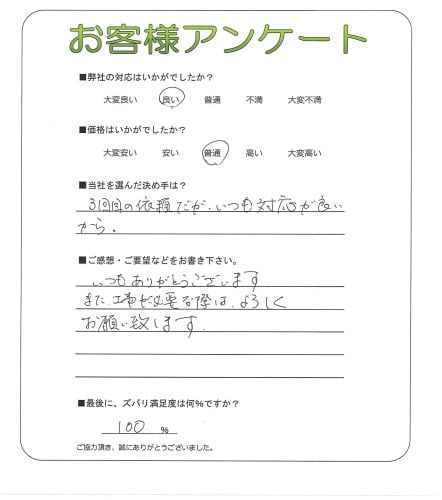 お客様アンケート
■弊社の対応はいかがでしたか？
大変良い 良い 普通 不満 大変不満
■価格はいかがでしたか？
大変安い 安い 普通 高い 大変高い
■当社を選んだ決め手は？
3回目の依頼だが、いつも対応が良い
から。
■ご感想・ご要望などをお書き下さい。
いつもありがとうございます
また、工事が必要な際は、よろしく
お願い致します。
■最後に、ズバリ満足度は何％ですか？
100 ％
ご協力頂き、誠にありがとうございました。